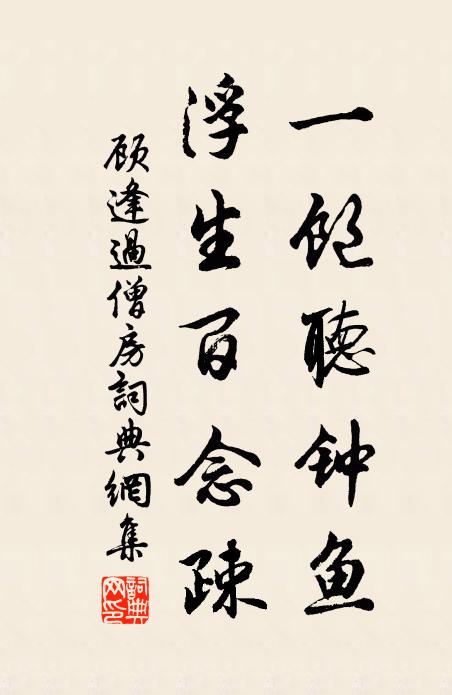 一饱聽钟鱼
浮生百念疎
顾逢過僧房詞典網集
詞典网印